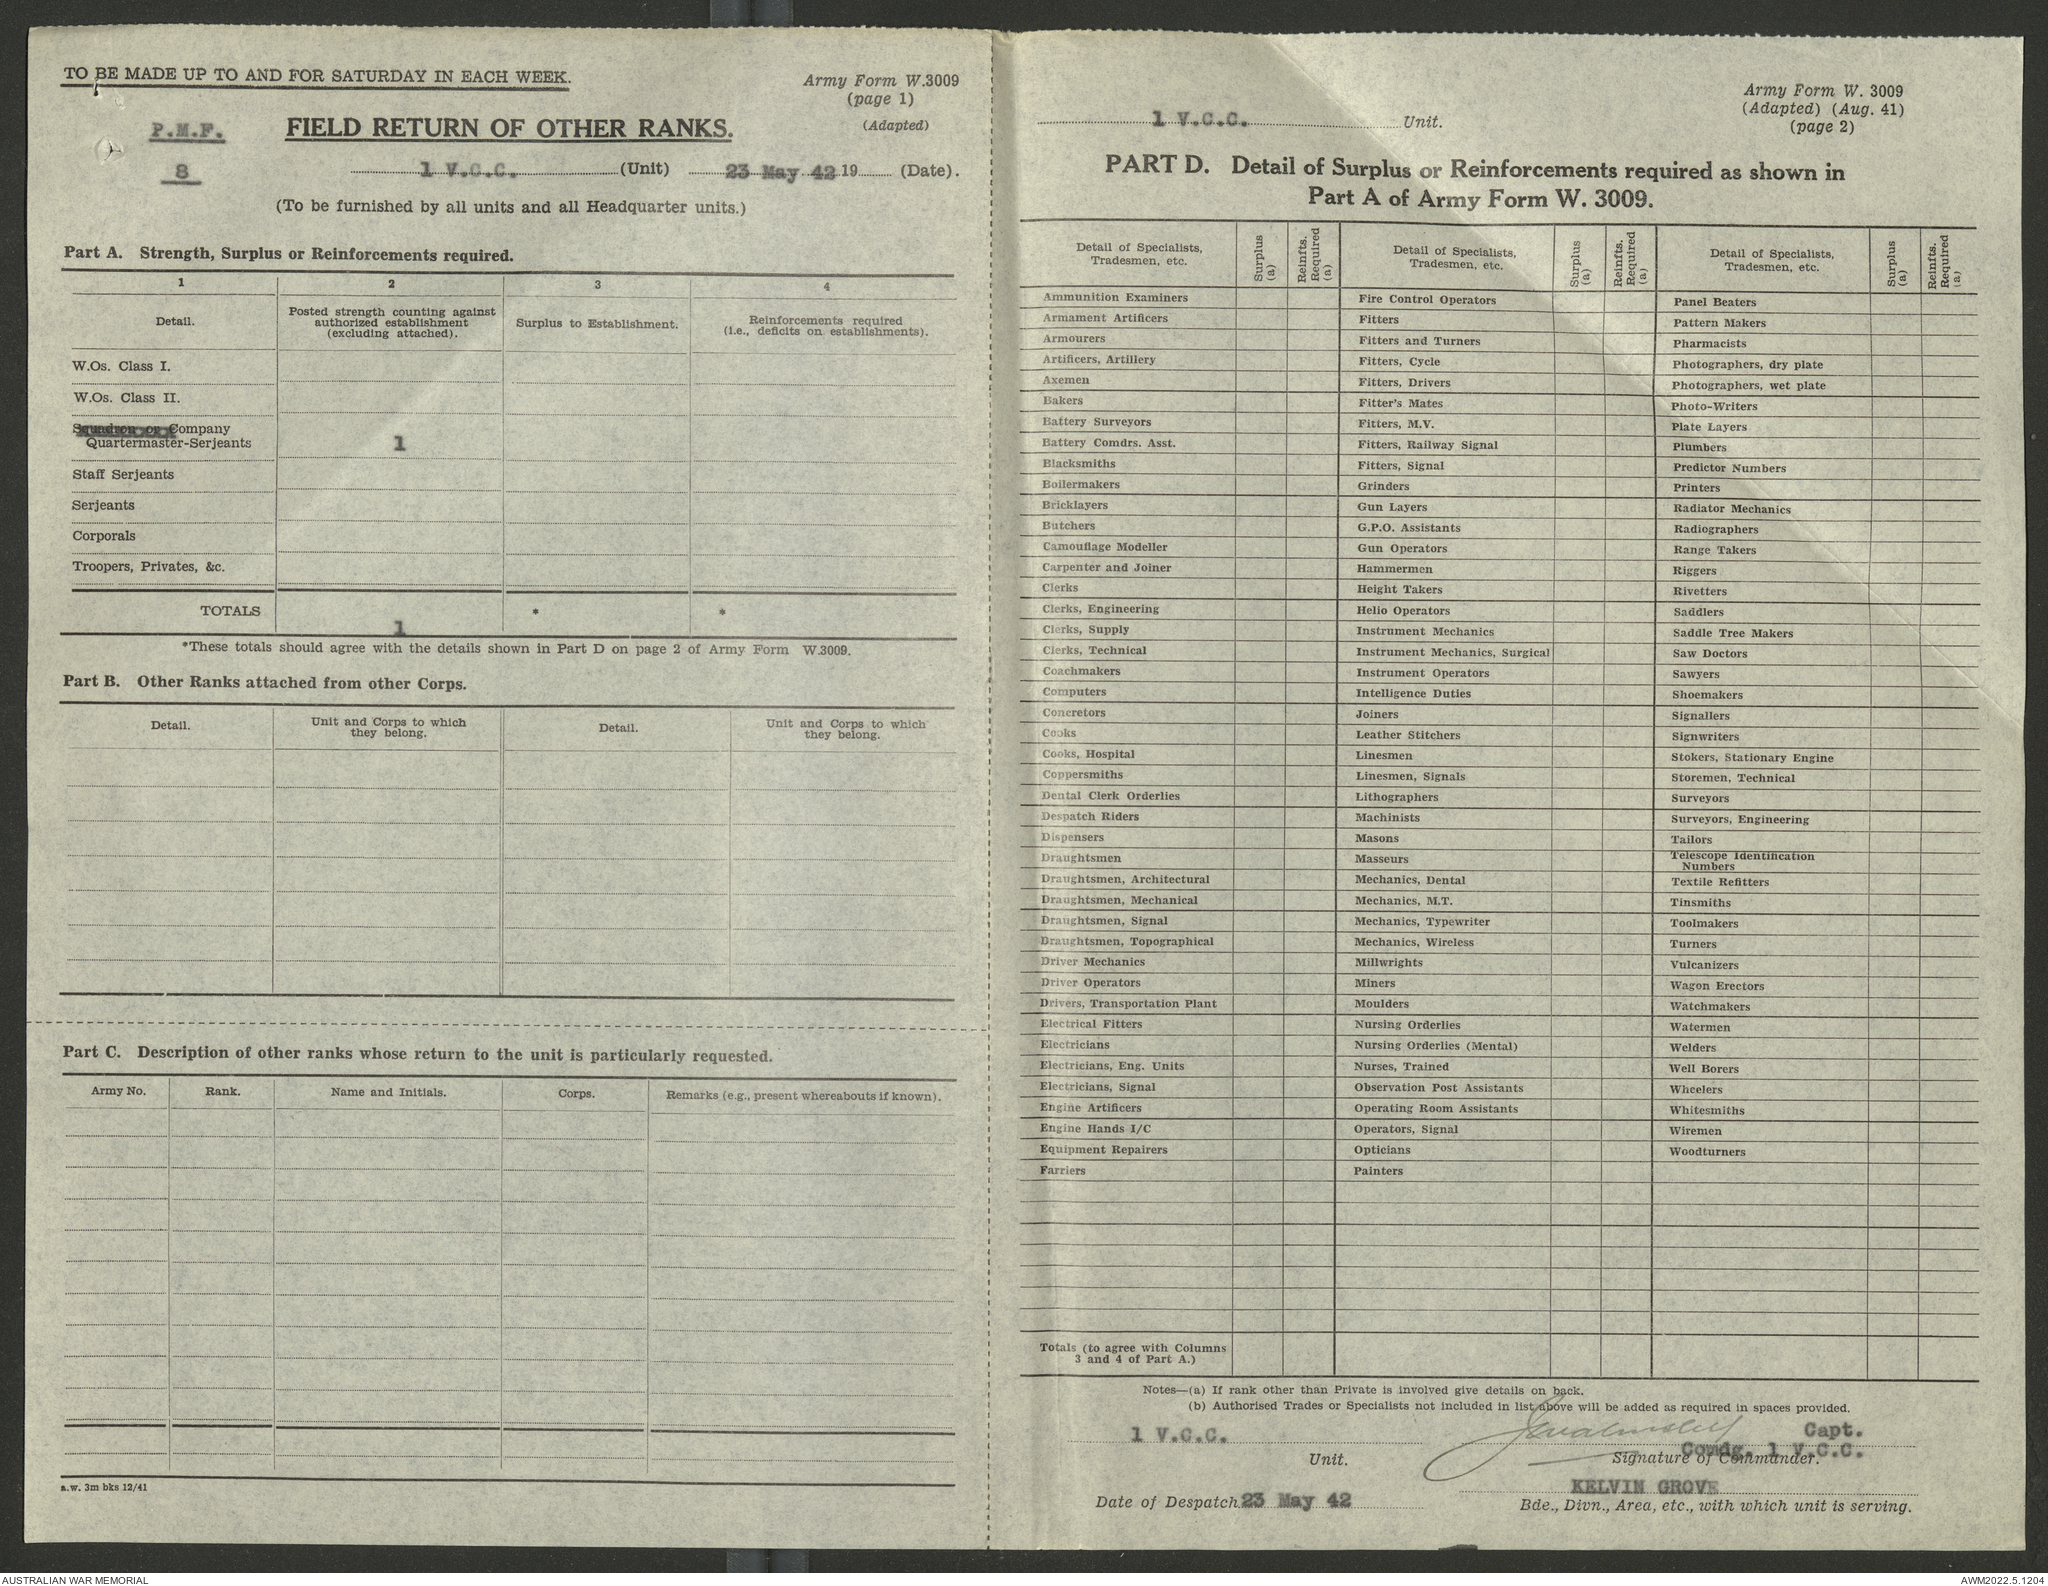 TO BE MADE UP TO AND FOR SATURDAY IN EACH WEEK.
Army Form W.3009
(page 1)
(Adapted)
P.M.F.
8
FIELD RETURN OF OTHER RANKS.
1 V.C.C. (Unit) 23 May 42 19 (Date).
(To be furnished by all units and all Headquarter units.)
Part A. Strength, Surplus or Reinforcements required.
1 2 3 4
Detail. Posted strength counting against authorized establishment (excluding attached). Surplus to Establishment. Reinforcements required (i.e., deficits on establishments).
W.Os. Class I.
W.Os. Class II.
Squadron or Company
Quartermaster-Serjeants 1
Staff Serjeants
Serjeants
Corporals
Troopers, Privates, &c.
TOTALS 1 * *
*These totals should agree with the details shown in Part D on page 2 of Army Form W.3009.
Part B. Other Ranks attached from other Corps.
Detail. Unit and Corps to which they belong. Detail. Unit and Corps to which they belong.
Part C. Description of other ranks whose return to the unit is particularly requested.
Army No. Rank. Name and Initials. Corps. Remarks (e.g., present whereabouts if known).
a.w. 3m bks 12/41
Army Form W. 3009
(Adapted) (Aug. 41)
(page 2)
1 V.C.C. Unit.
PART D. Detail of Surplus or Reinforcements required as shown in
Part A of Army Form W. 3009.
Detail of Specialists, Tradesmen, etc. Surplus (a) Reinfts. Required (a) Detail of Specialists, Tradesmen, etc. Surplus (a) Reinfts. Required (a) Detail of Specialists, Tradesmen, etc. Surplus (a) Reinfts. Required (a)
Ammunition Examiners Fire Control Operators Panel Beaters
Armament Artificers Fitters Pattern Makers
Armourers Fitters and Turners Pharmacists
Artificers, Artillery Fitters, Cycle Photographers, dry plate
Axemen Fitters, Drivers Photographers, wet plate
Bakers Fitter's Mates Photo-Writers
Battery Surveyors Fitters, M.V. Plate Layers
Battery Comdrs. Asst. Fitters, Railway Signal Plumbers
Blacksmiths Fitters, Signal Predictor Numbers
Boilermakers Grinders Printers
Bricklayers Gun Layers Radiator Mechanics
Butchers G.P.O. Assistants Radiographers
Camouflage Modeller Gun Operators Range Takers
Carpenter and Joiner Hammermen Riggers
Clerks Height Takers Rivetters
Clerks, Engineering Helio Operators Saddlers
Clerks, Supply Instrument Mechanics Saddle Tree Makers
Clerks, Technical Instrument Mechanics, Surgical Saw Doctors
Coachmakers Instrument Operators Sawyers
Computers Intelligence Duties Shoemakers
Concretors Joiners Signallers
Cooks Leather Stitchers Signwriters
Cooks, Hospital Linesmen Stokers, Stationary Engine
Coppersmiths Linesmen, Signals Storemen, Technical
Dental Clerk Orderlies Lithographers Surveyors
Despatch Riders Machinists Surveyors, Engineering
Dispensers Masons Tailors
Draughtsmen Masseurs Telescope Identification Numbers
Draughtsmen, Architectural Mechanics, Dental Textile Refitters
Draughtsmen, Mechanical Mechanics, M.T. Tinsmiths
Draughtsmen, Signal Mechanics, Typewriter Toolmakers
Draughtsmen, Topographical Mechanics, Wireless Turners
Driver Mechanics Millwrights Vulcanizers
Driver Operators Miners Wagon Erectors
Drivers, Transportation Plant Moulders Watchmakers
Electrical Fitters Nursing Orderlies Watermen
Electricians Nursing Orderlies (Mental) Welders
Electricians, Eng. Units Nurses, Trained Well Borers
Electricians, Signal Observation Post Assistants Wheelers
Engine Artificers Operating Room Assistants Whitesmiths
Engine Hands I/C Operators, Signal Wiremen
Equipment Repairers Opticians Woodturners
Farriers Painters
Totals (to agree with Columns
3 and 4 of Part A.)
Notes—(a) If rank other than Private is involved give details on back.
(b) Authorised Trades or Specialists not included in list above will be added as required in spaces provided.
1 V.C.C. Capt.
Comdg. 1 V.C.C.
Unit. Signature of Commander.
KELVIN GROVE
Date of Despatch 23 May 42 Bde., Divn., Area, etc., with which unit is serving.
AUSTRALIAN WAR MEMORIAL
AWM2022.5.1204